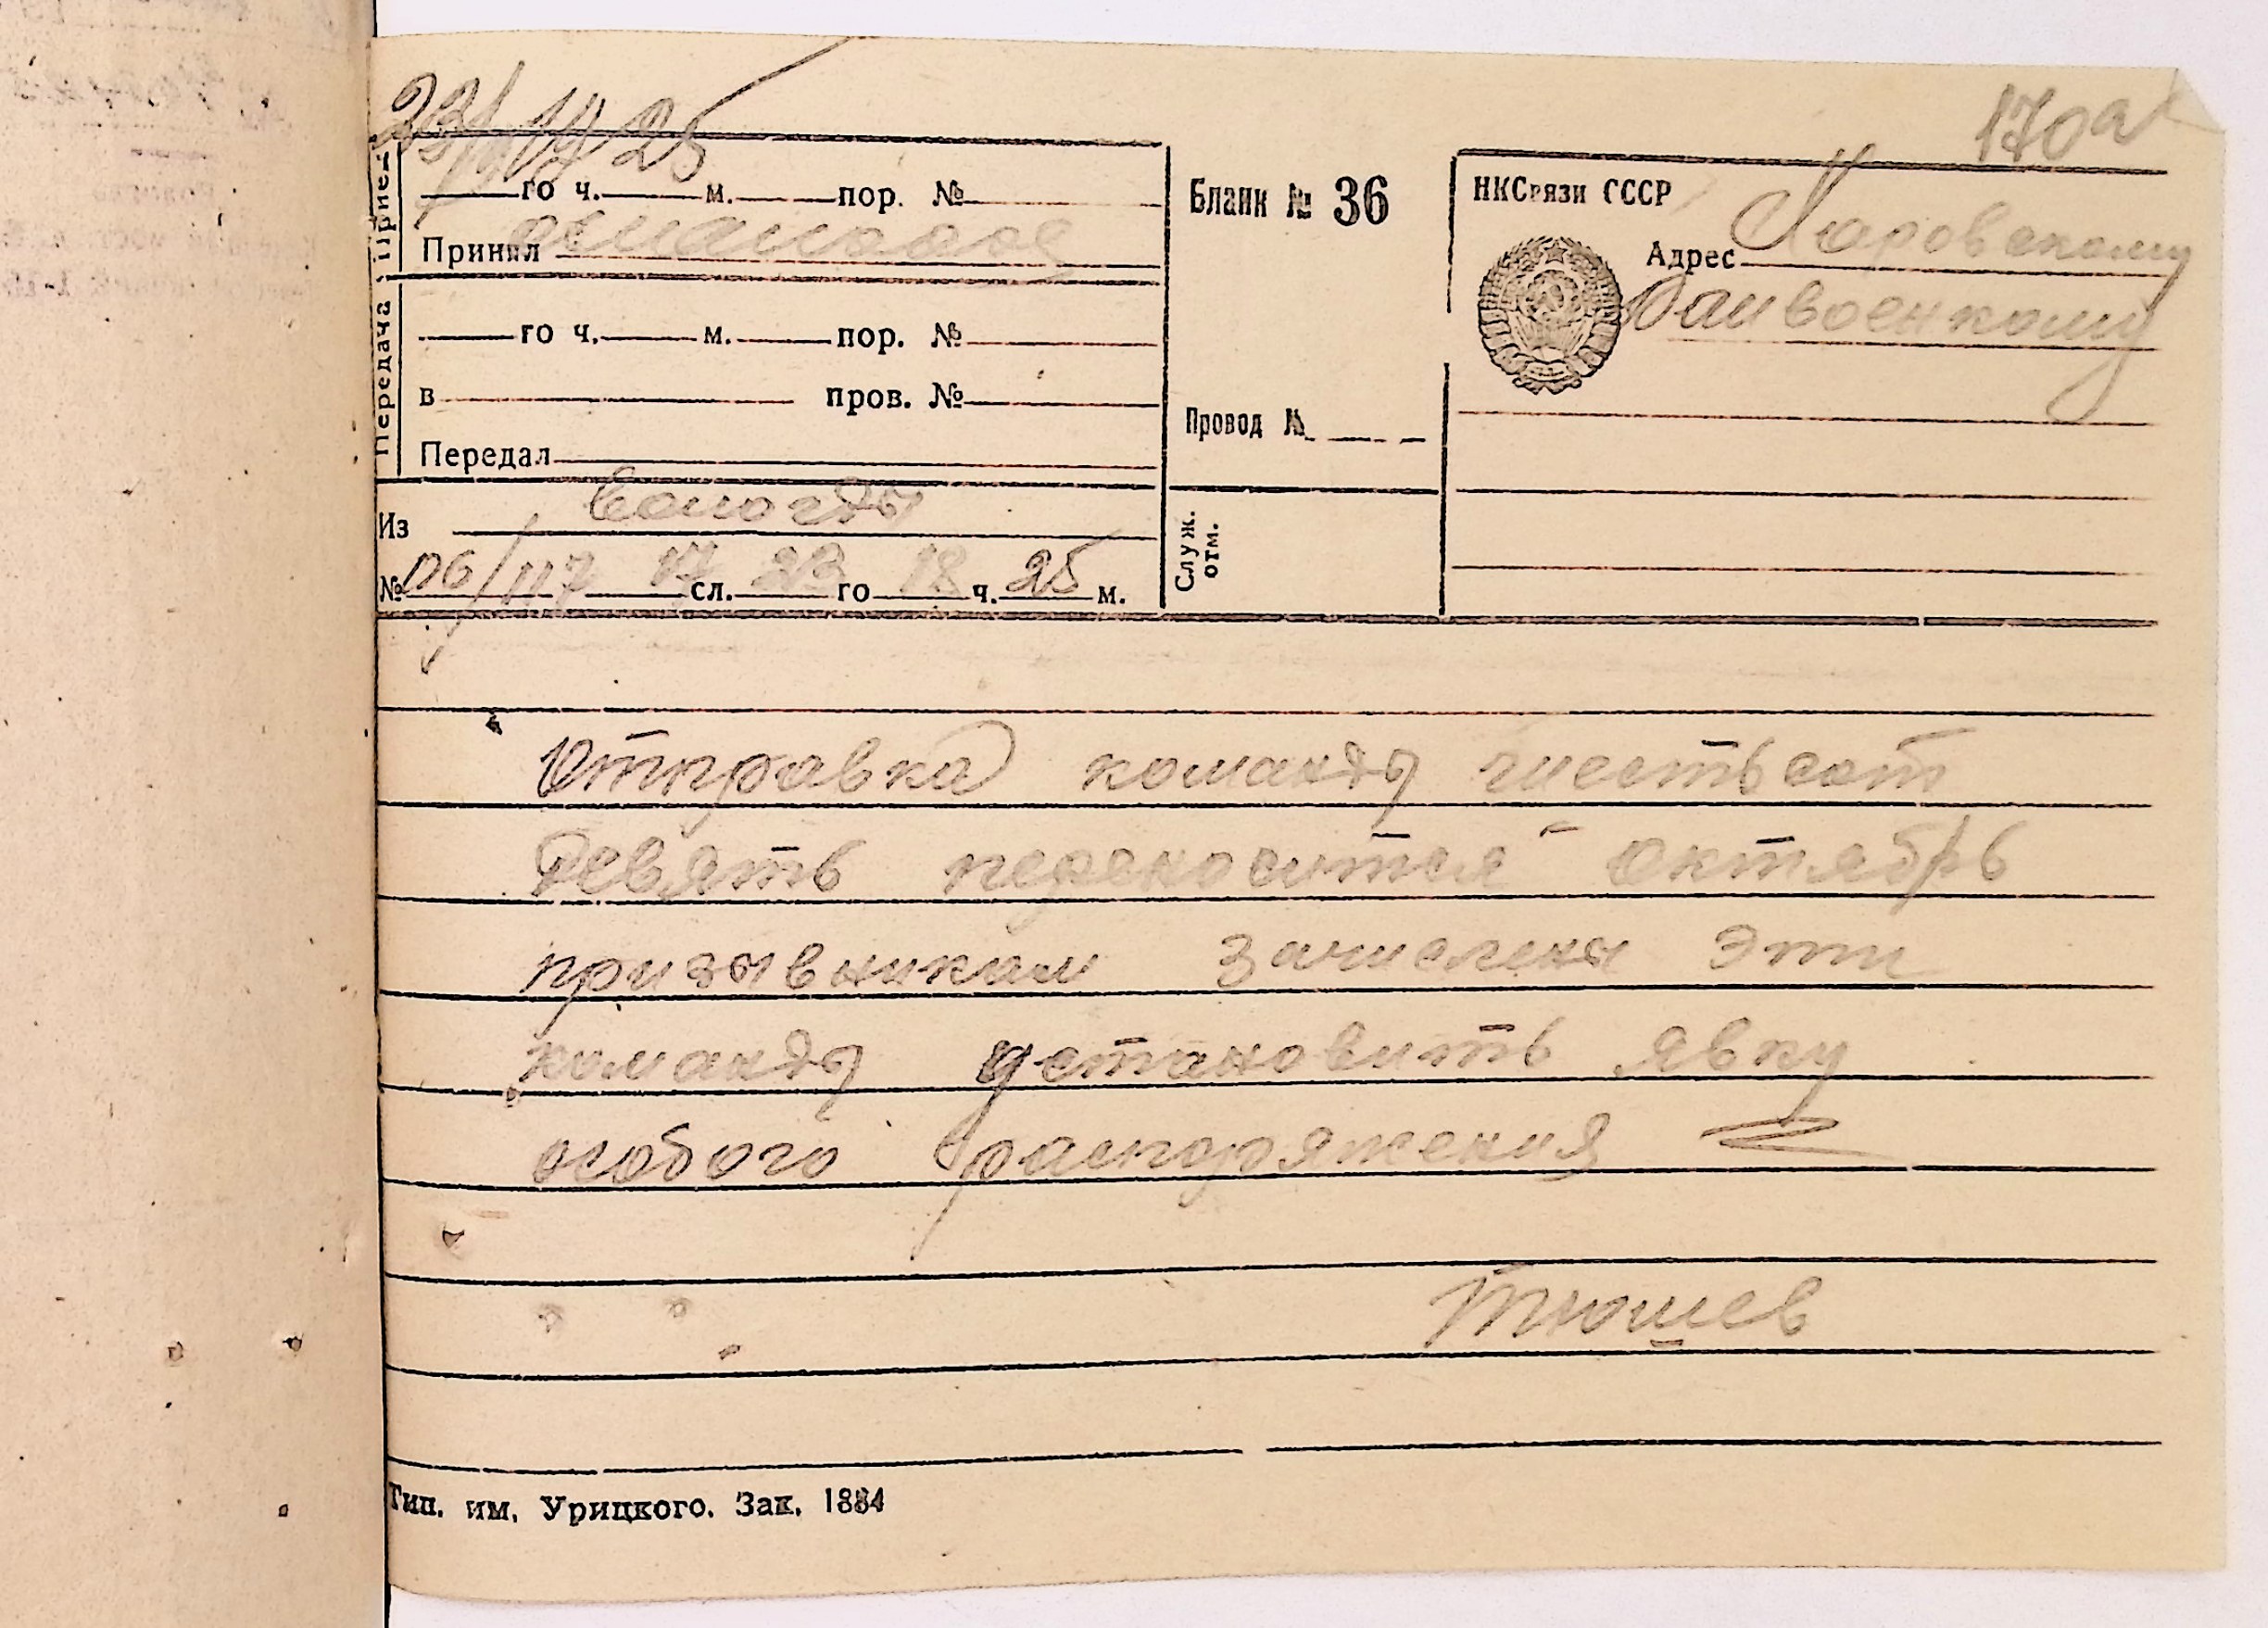 170а
23/ 19 25
Прием
го ч. м. пор. №
Принял
Передача
го ч. м. пор. №
в пров. №
Передал
Из Вологды
№ 126/117 17 сл. 23 го 18 ч. 25 м.
Бланк № 36
Провод №
Служ. отм.
НКСвязи СССР
Адрес Харовскому
Райвоенкому
Отправка команды шестьсот
девять переносится октябрь
призывникам зачислены эти
команды установить явку
особого распоряжения
Тюшев
Тип. им. Урицкого. Зак. 1884